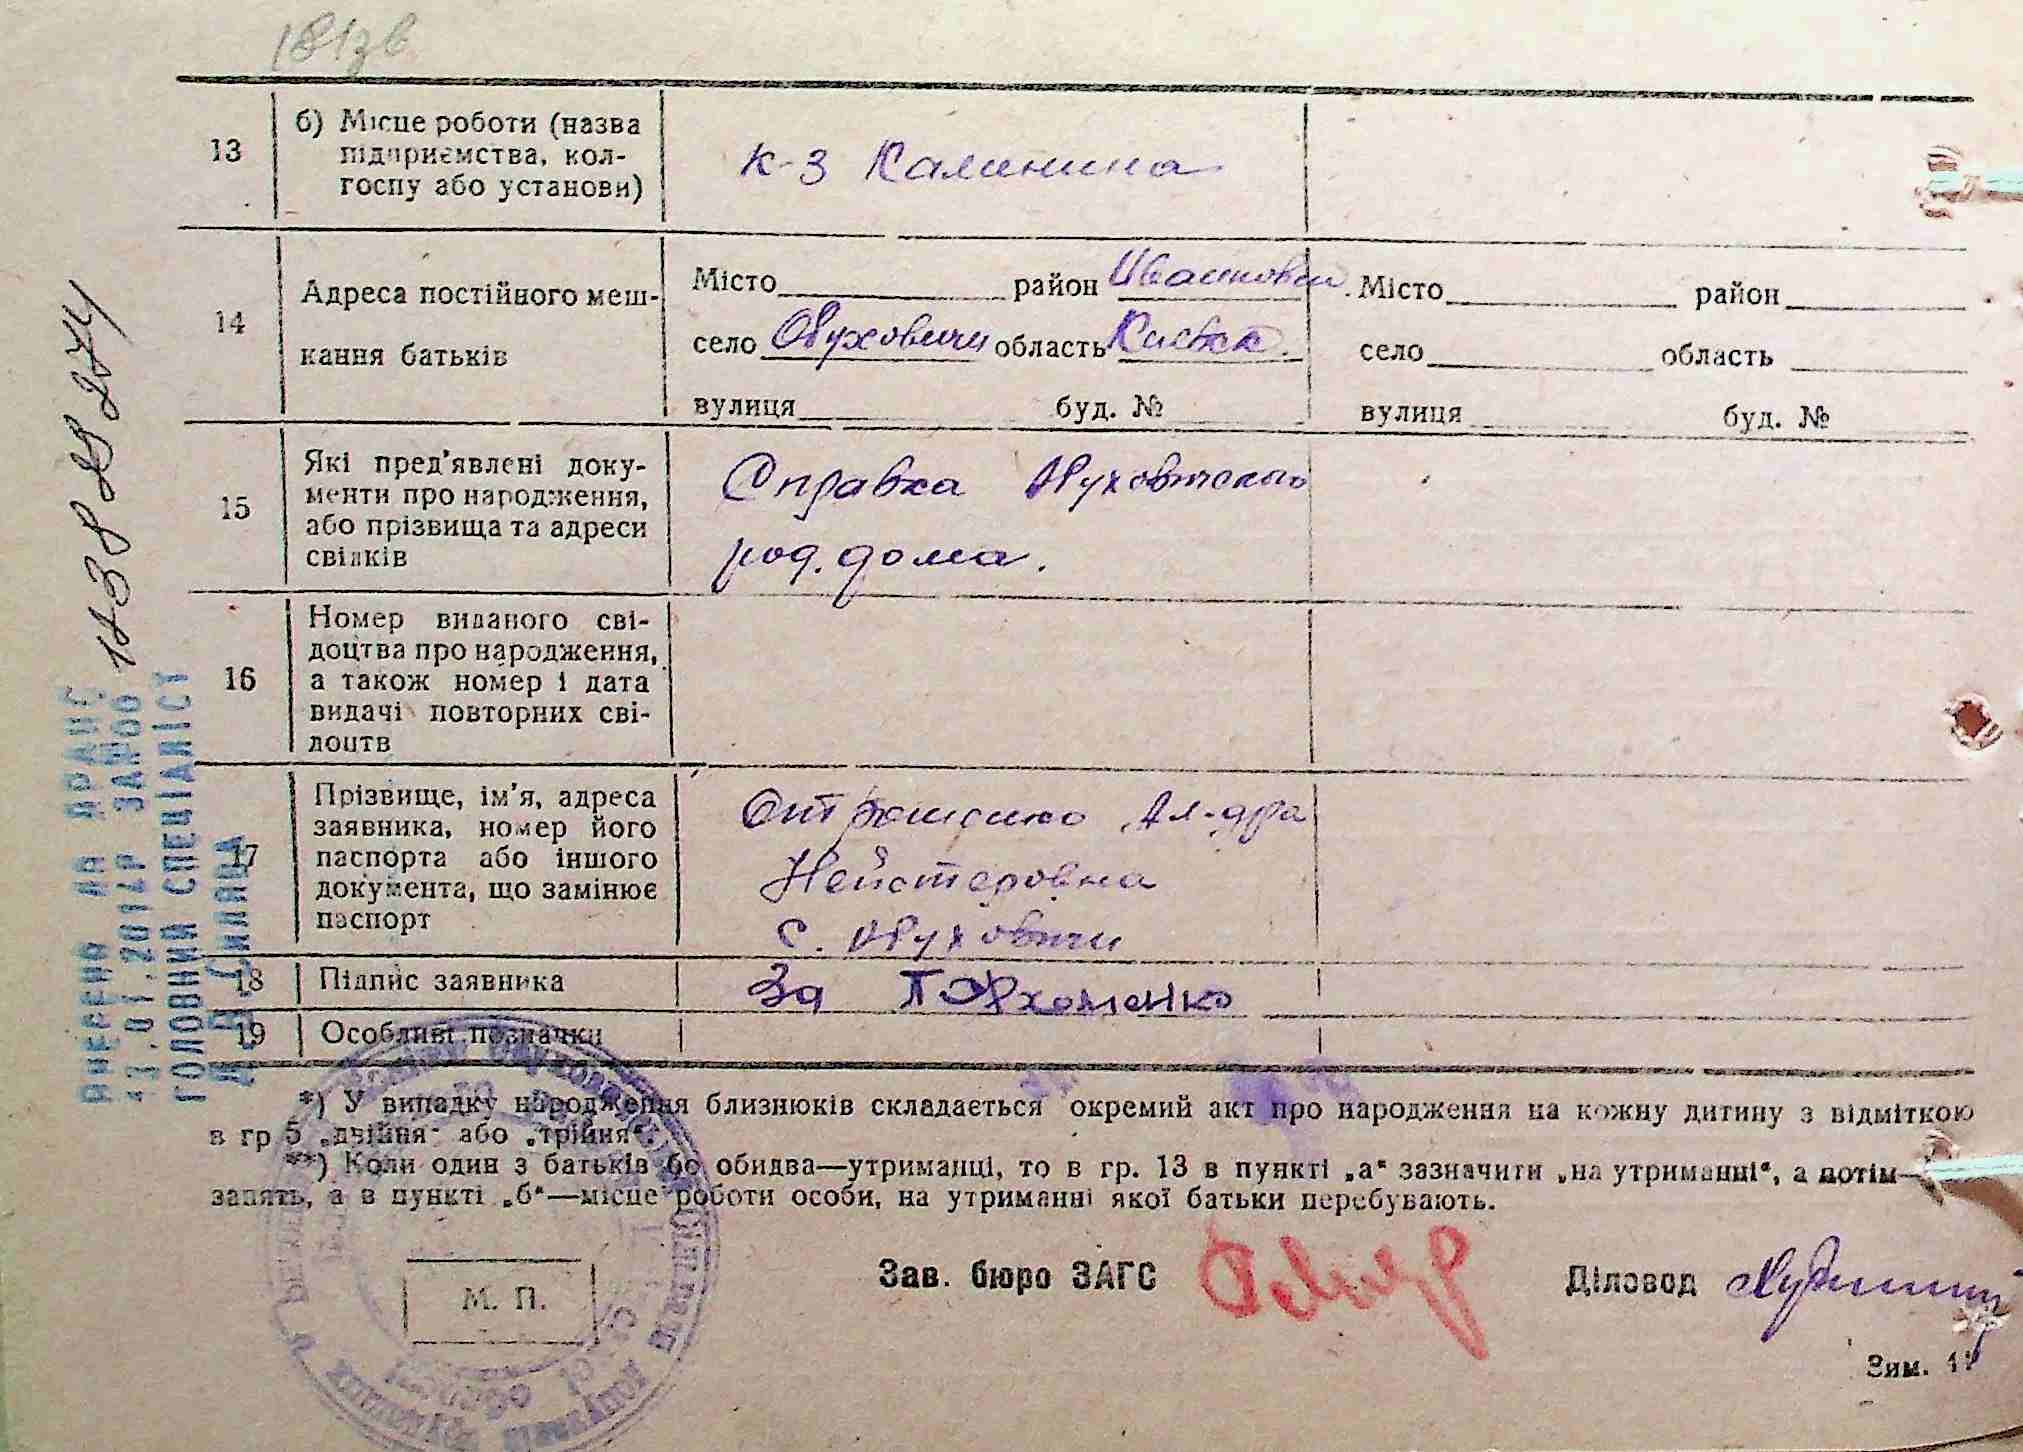 181зв
13
б) Місце роботи (назва
підприємства, кол-
госпу або установи)
к-з Калинина
14
Адреса постійного меш-
кання батьків
Місто район Иванковск.
село Обуховичи область Киевск.
вулиця буд. №
Місто район
село область
вулиця буд. №
15
Які пред'явлені доку-
менти про народження,
або прізвища та адреси
свідків
Справка Обуховичского
род. дома.
16
Номер виданого сві-
доцтва про народження,
а також номер і дата
видачі повторних сві-
доцтв
17
Прізвище, ім'я, адреса
заявника, номер його
паспорта або іншого
документа, що замінює
паспорт
Ал-дра
Нейстеровна
с. Обуховичи
18
Підпис заявника
За Пархоменко
19
Особливі позначки
*) У випадку народження близнюків складається окремий акт про народження на кожну дитину з відміткою
в гр 5 „двійня" або „трійня".
**) Коли один з батьків бо обидва—утриманці, то в гр. 13 в пункті „а" зазначити „на утриманні", а потім—
запять, а в пункті „б"—місце роботи особи, на утриманні якої батьки перебувають.
М. П.
Зав. бюро ЗАГС
Діловод
Зим.
ВНЕСЕНО ДО ДРАЦС
.01.2012Р
ГОЛОВНИЙ СПЕЦІАЛІСТ